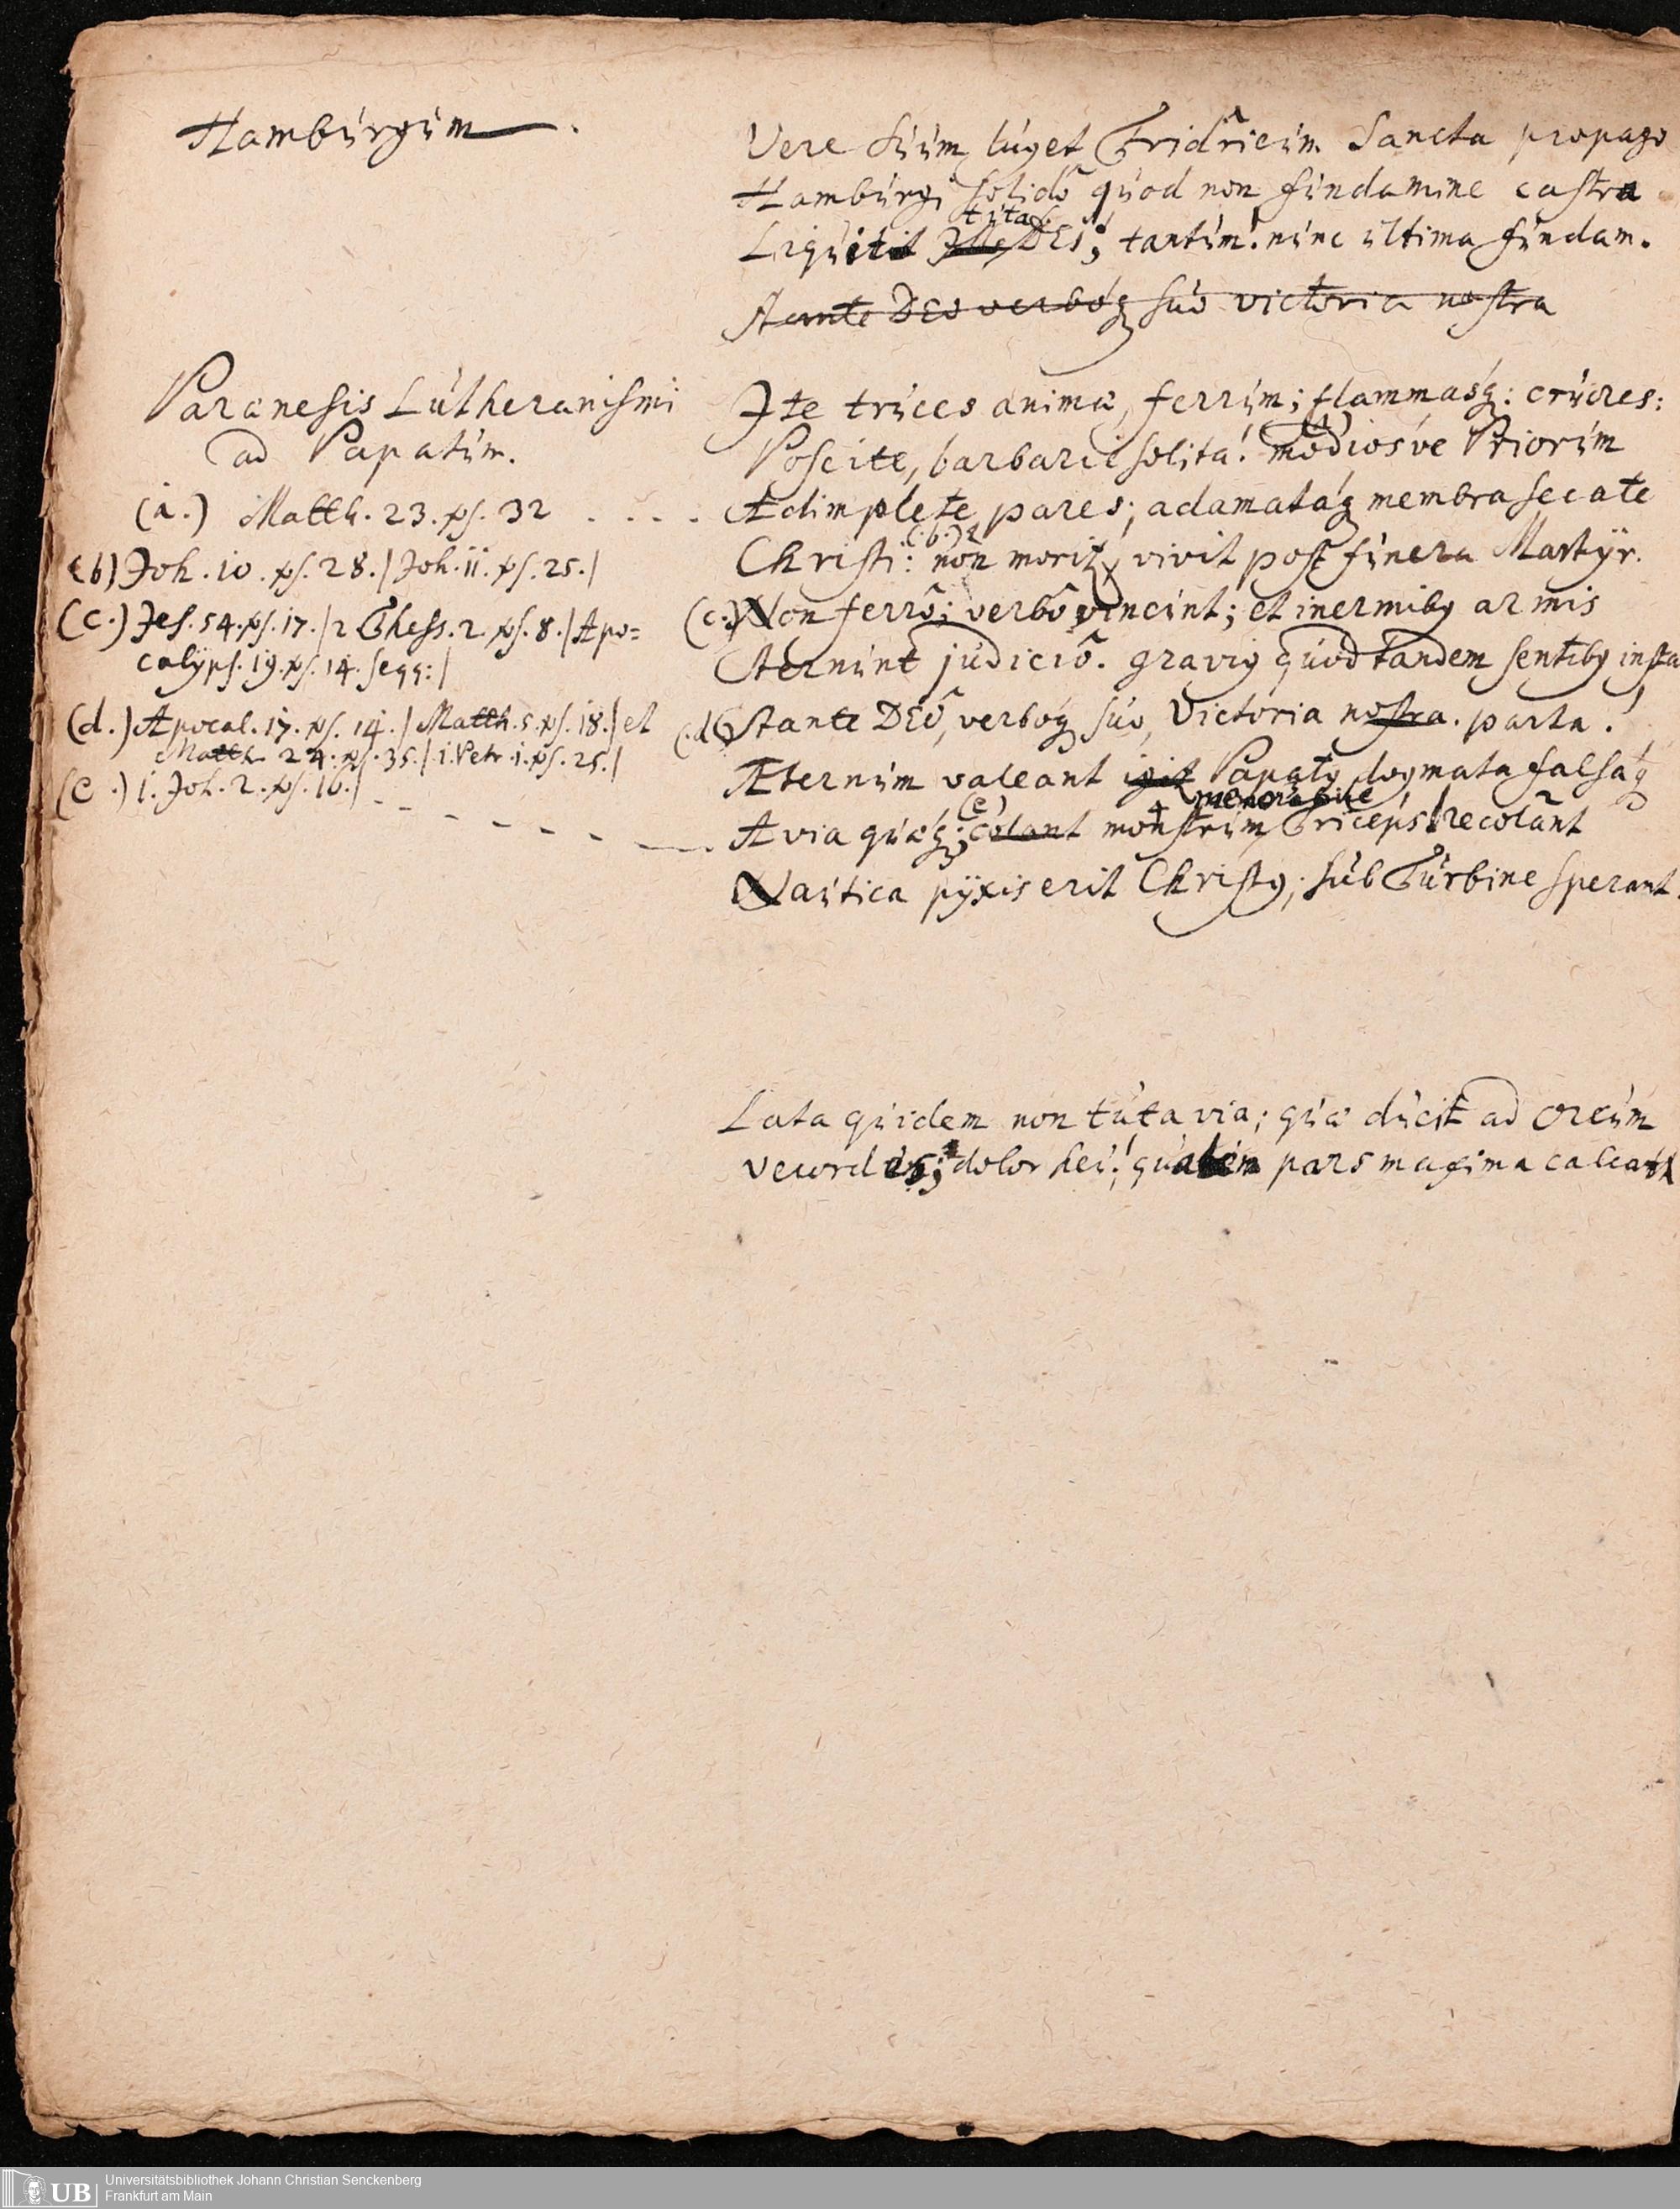 Hamburgum.
Vere suum luget Fridricum Sancta propago
Hamburgi solidô quod non fundamine castra
tuta
Liquit DEI; tantum! nunc ultima fundam.
Stante DEO verboq suo victoria nostra
Parænesis Lutheranismi
ad Papatum.
(a.) Matth. 23. ℣. 32 . . . .
(b) Joh. 10. ℣. 28. / Joh. 11. ℣. 25. /
(c.) Jes. 54. ℣. 17. / 2 Thess. 2. ℣. 8. / Apo=
calyps. 19. ℣. 14. seqq: /
(d.) Apocal. 17. ℣. 14. / Matth. 5. ℣. 18. / et
Matth. 24. ℣. 35. / 1. Petr. 1. ℣. 25. /
(e.) 1. Joh. 2. ℣. 16. /
Ite truces animæ, ferrum; flammasq: cruces:
(a)
Poscite, barbarie solita! modiosve Priorum
Adimplete pares; adamataq membra secate
(b.)
Christi: non morit, vivit post funera Martÿr.
(c.) Non ferrô; verbô vincunt; et inermibq armis
Sternunt judiciô. graviq quod tandem sentibq insta
(d.) Stante DEÔ, verboq suo, Victoria nostra. parta.
Æternum valeant igit Papatq dogmata falsaq
(e) memorabile
Avia quæq; colant monstrum Triceps! recolant
Nautica pÿxis erit Christq; sub Turbine sperant.
Lata quidem non tuta via; quæ ducit ad Orcum
vecordes; dolor heu! qualem pars maxima calcat
UB
Universitätsbibliothek Johann Christian Senckenberg
Frankfurt am Main